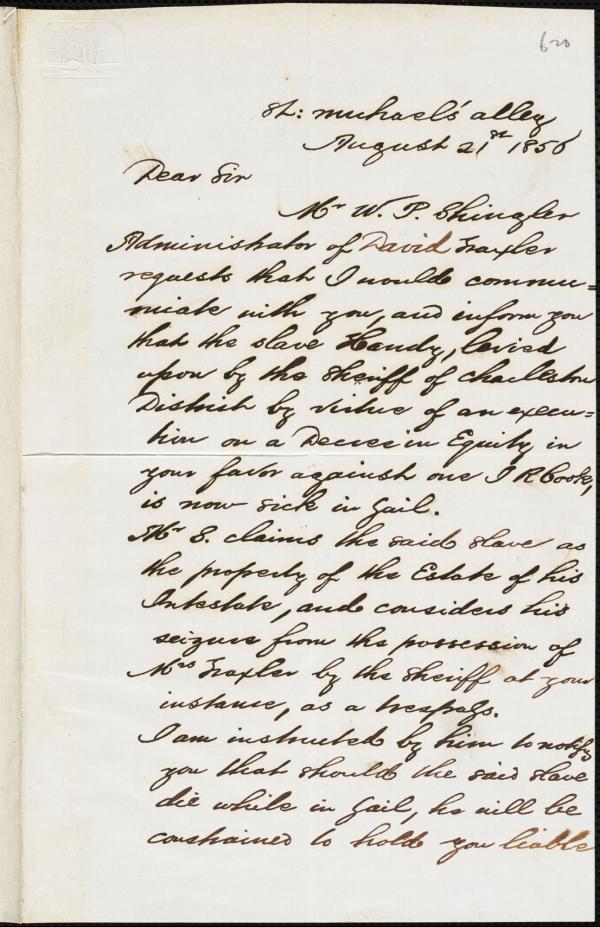 620
St: Michael's alley
August 21st 1856
Dear Sir
Mr W. P. Shingler
Administrator of David Traxler
requests that I would commu=
nicate with you, and inform you
that the slave Handy, levied
upon by the Sheriff of Charleston
District by virtue of an execu=
tion on a Decree in Equity in
your favor against one J R Cook,
is now sick in Gail.
Mr S. claims the said slave as
the property of the Estate of his
Intestate, and considers his
seizure from the possession of
Mrs Traxler by the Sheriff at your
instance, as a trespass.
I am instructed by him to notify
you that should the said slave
die while in Gail, he will be
constrained to hold you liable